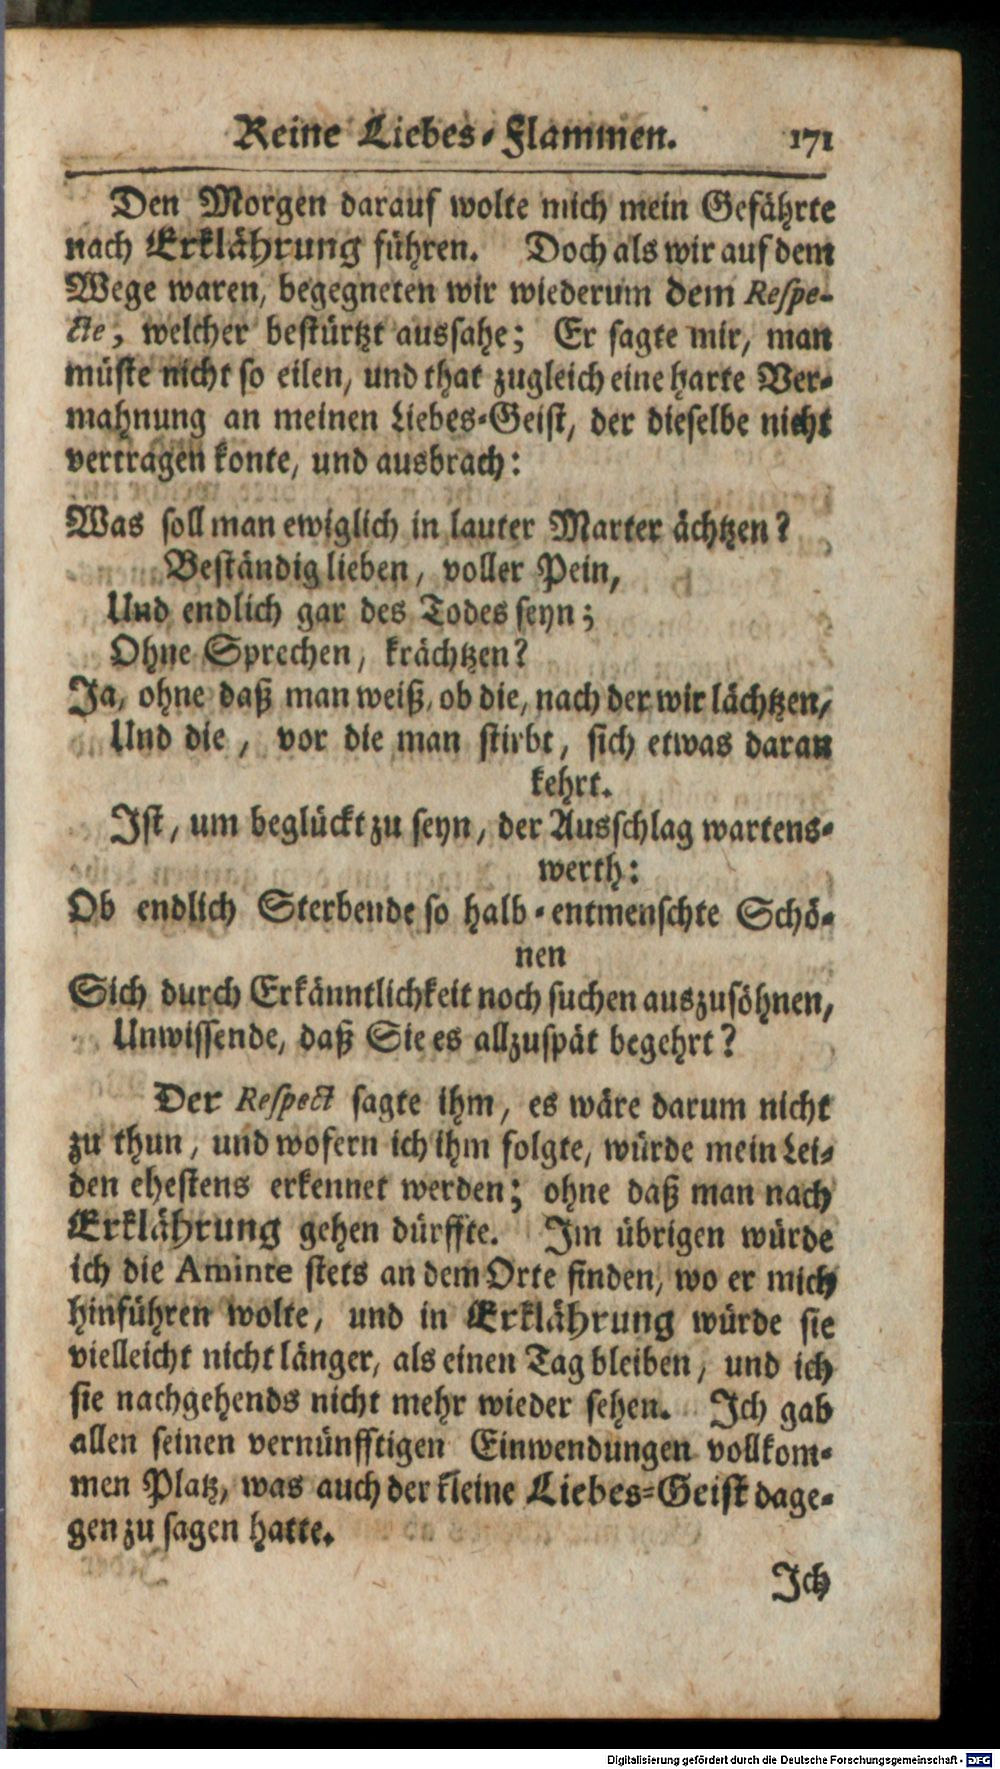 Reine Liebes-Flammen. 171
Den Morgen darauf wolte mich mein Gefährte
nach Erklährung führen. Doch als wir auf dem
Wege waren, begegneten wir wiederum dem Respe-
cte, welcher bestürtzt aussahe; Er sagte mir, man
müste nicht so eilen, und that zugleich eine harte Ver-
mahnung an meinen Liebes-Geist, der dieselbe nicht
vertragen konte, und ausbrach:
Was soll man ewiglich in lauter Marter ächtzen?
Beständig lieben, voller Pein,
Und endlich gar des Todes seyn;
Ohne Sprechen, krächtzen?
Ja, ohne daß man weiß, ob die, nach der wir lächtzen,
Und die, vor die man stirbt, sich etwas daran
kehrt.
Ist, um beglückt zu seyn, der Ausschlag wartens-
werth:
Ob endlich Sterbende so halb-entmenschte Schö-
nen
Sich durch Erkänntlichkeit noch suchen auszusöhnen,
Unwissende, daß Sie es allzuspät begehrt?
Der Respect sagte ihm, es wäre darum nicht
zu thun, und wofern ich ihm folgte, würde mein Lei-
den ehestens erkennet werden; ohne daß man nach
Erklährung gehen dürffte. Im übrigen würde
ich die Aminte stets an dem Orte finden, wo er mich
hinführen wolte, und in Erklährung würde sie
vielleicht nicht länger, als einen Tag bleiben, und ich
sie nachgehends nicht mehr wieder sehen. Ich gab
allen seinen vernünfftigen Einwendungen vollkom-
men Platz, was auch der kleine Liebes-Geist dage-
gen zu sagen hatte.
Ich
Digitalisierung gefördert durch die Deutsche Forschungsgemeinschaft - DFG